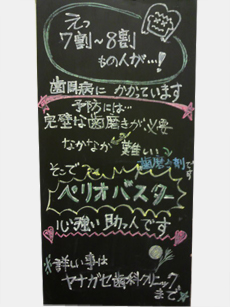 えっ
7割～8割
もの人が…!
歯周病に かかっています
予防には…
完璧な歯磨きが必要
なかなか 難しい…
そこで 歯磨剤です
ペリオバスター
心強い助っ人です
※詳しい事は
ヤナガセ歯科クリニック
まで